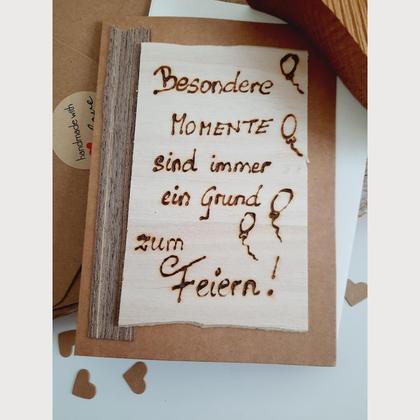 Besondere
MOMENTE
sind immer
ein Grund
zum
Feiern!
handmade with
love